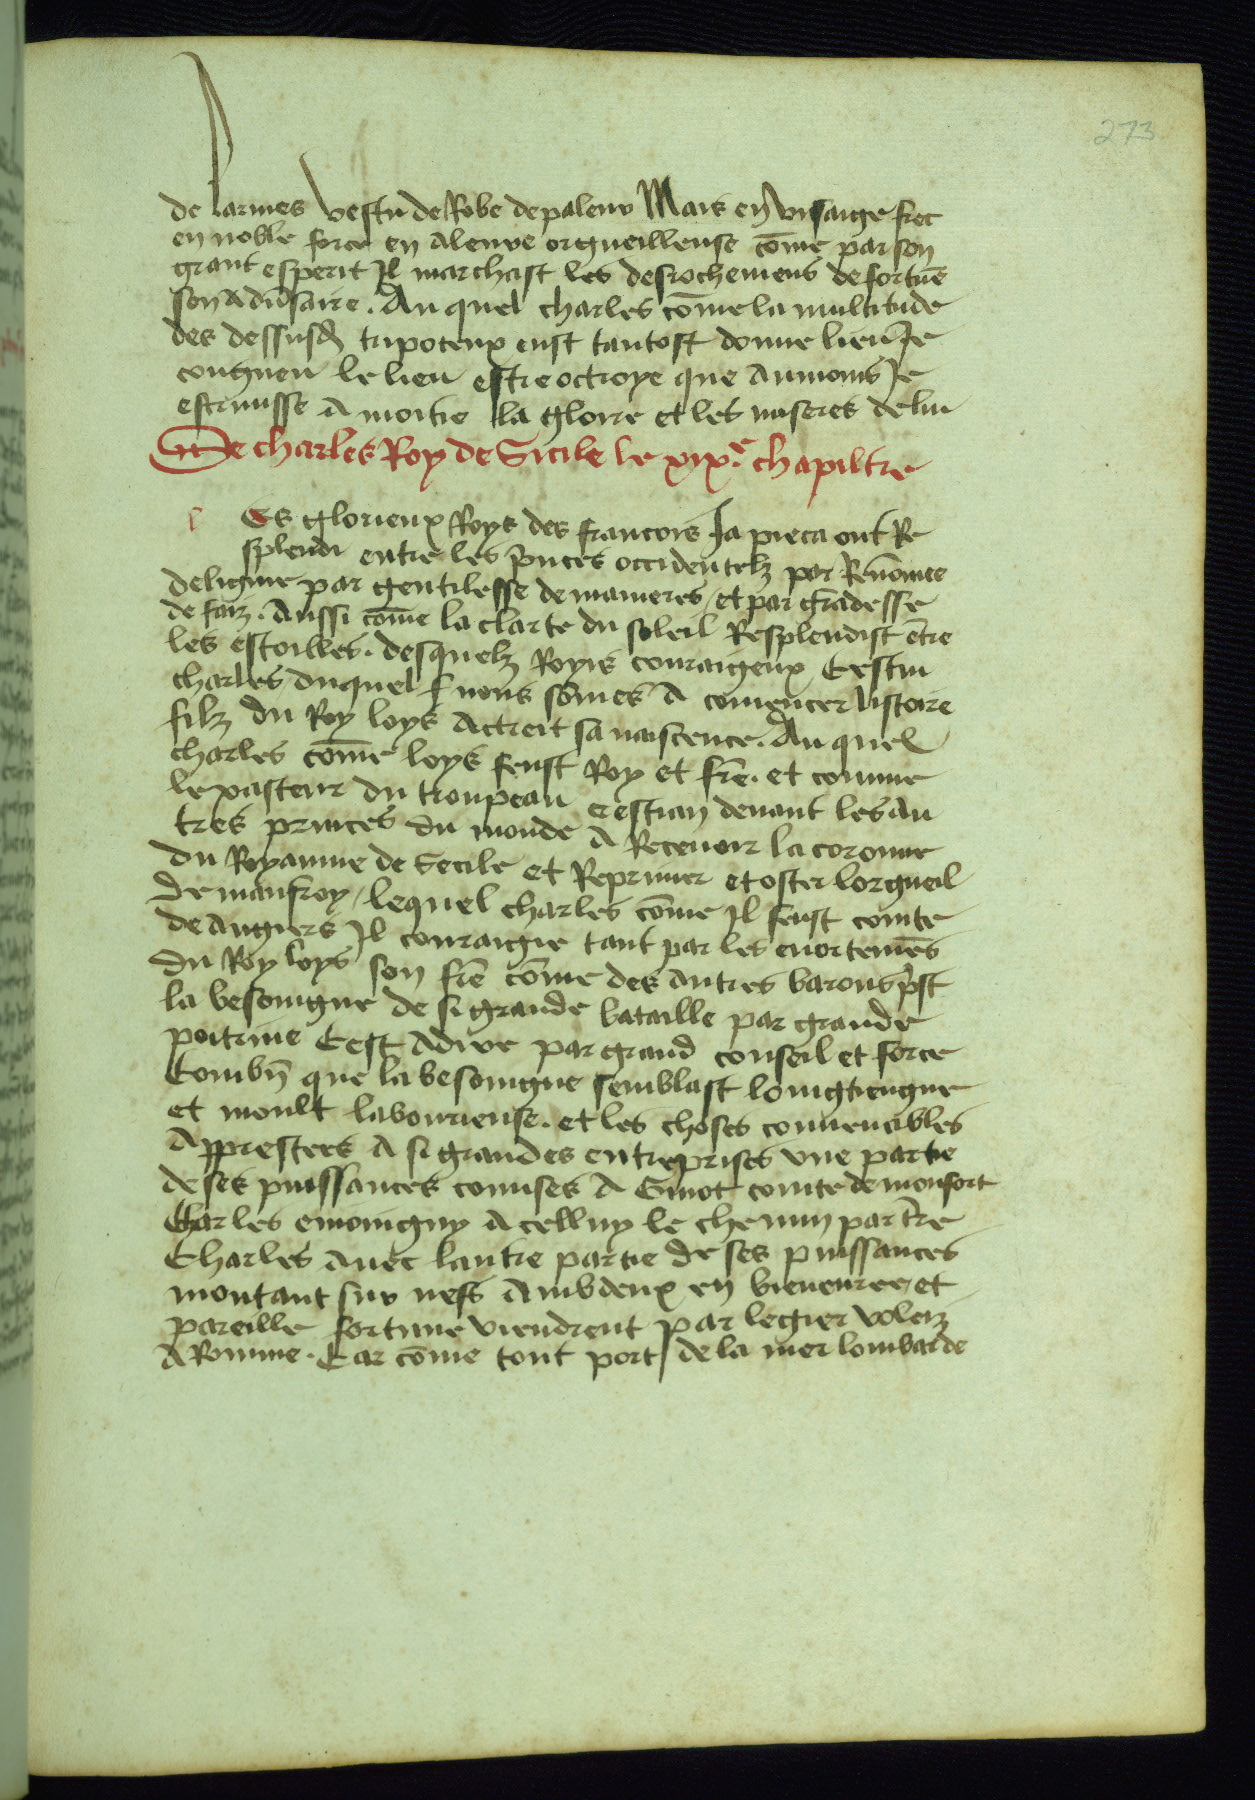 273
de larmes vestu de Robe de paleur Mais en visaige fier
en noble force en aleure orgueilleuse cōme par son
grant esperit Il marchast les desrochemens de fortūe
son adūsaire. Au quel charles cōme la multitude
des dessusd tripoteux eust tantost donne lieu Je
congneu le lieu estre octroye que aumoins Je
escrivisse a moitie la gloire et les miseres de lui
De charles Roy de Sicile le xixe chapiltre
l Es glorieux Roys des francois Ja pieca ont Re
splendi entre les p̄nces occidentelz par Renōmee
de ligne par gentilesse de manieres / et par grādesse
de faiz. Aussi cōme la clarte du soleil Resplendist ētre
les estoilles. desquelz Roys couraigeux Cestui
charles duquel nous sōmes a comencer listoire
filz du Roy loys actreit sa naiscence. Au quel
charles cōme loys feust Roy et frē. et comme
le pasteur du troupeau crestian devant les au
tres princes du monde a Recevoir la coronne
du Royaume de Secile et Reprimer et oster lorgueil
de manfroy / lequel charles cōme Il feust comte
de Angiers Il couraigie tant par les enortemēs
du Roy loys son frē cōme des autres barons p̄st
la besoingne de si grande bataille par grande
poitrine Cest adire par grand conseil et force
Combn̄ que la besoingne semblast loingtiengne
et moult labourieuse. et les choses convenables
Apprestees a si grandes entreprises une partie
de ses puissances comises a Guiot comte de monfort
Charles enioingny a celluy le chemin par tr̄re
Charles avec lautre partie de ses puissances
montant sur nefs Ambdeux en bieneuree et
pareille fortune viendrent par legier voleiz
a Romme. Car cōme tout port de la mer lombarde